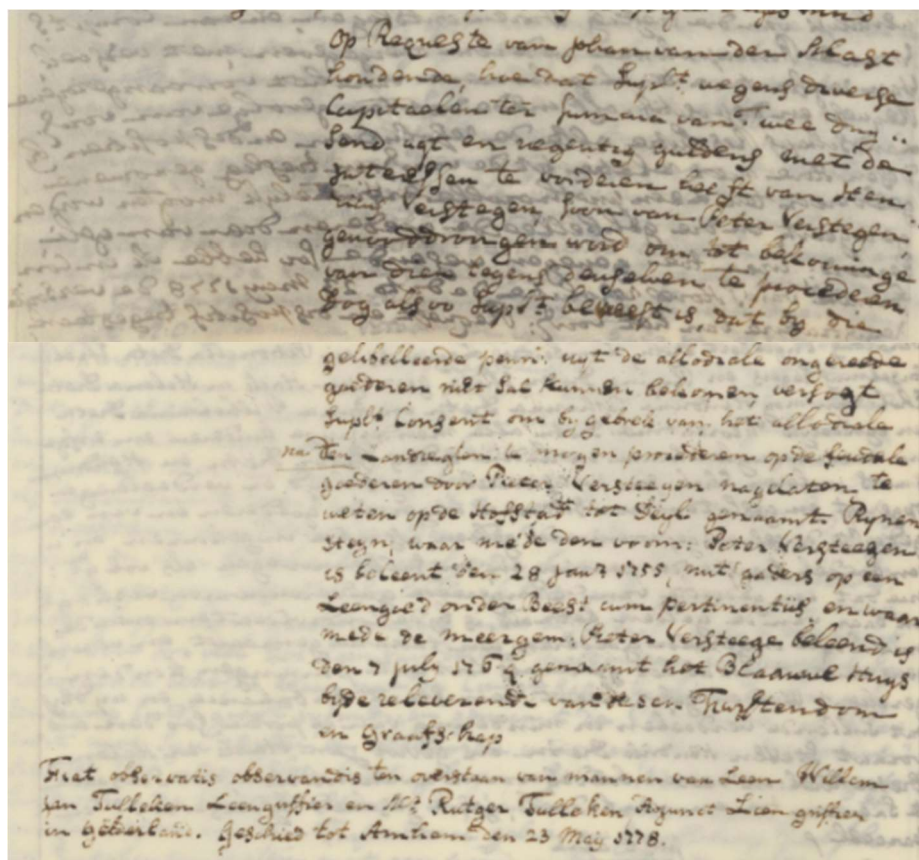 Op Requeste van Johan van der Maast
houdende, hoe dat Supl.t wegens diverse
Capitaelen ter summa van twee duy
send agt en negentig guldens met de
interessen te vorderen heeft van Hen
rik Verstegen soon van Peter Verstegen
genooddrongen word om tot bekominge
van dien tegens denselven te procederen
Dog alsoo Supl.t bevreest is dat by die
gelibelleerde penn: uyt de allodiale ongereede
goederen niet sal kunnen bekomen versogt
Supl.t Consent om by gebrek van het allodiale
na den Landregten te mogen procederen op de feudale
goederen door Pieter Versteegen nagelaten te
weten op de Hofstad tot Deyl genaamt Ryner
steyn, waar mede den voorn: Peter Versteegen
is beleent den 28 Jan: 1755, mitsgaders op een
Leengoed onder Beest cum pertinentiis en waar
mede de meergem: Pieter Versteege beleend is
den 7 July 176 genaamt het Blaauwe Huys
beyde releverende van desen Furstendom
en Graafschap
Fiat observatis observandis ten overstaan van mannen van Leen Willem
Jan Tulleken Leengriffier en Mr Rutger Tulleken Adjunct Leengriffier
in Gelderland. Geschied tot Arnhem den 23 May 1778.